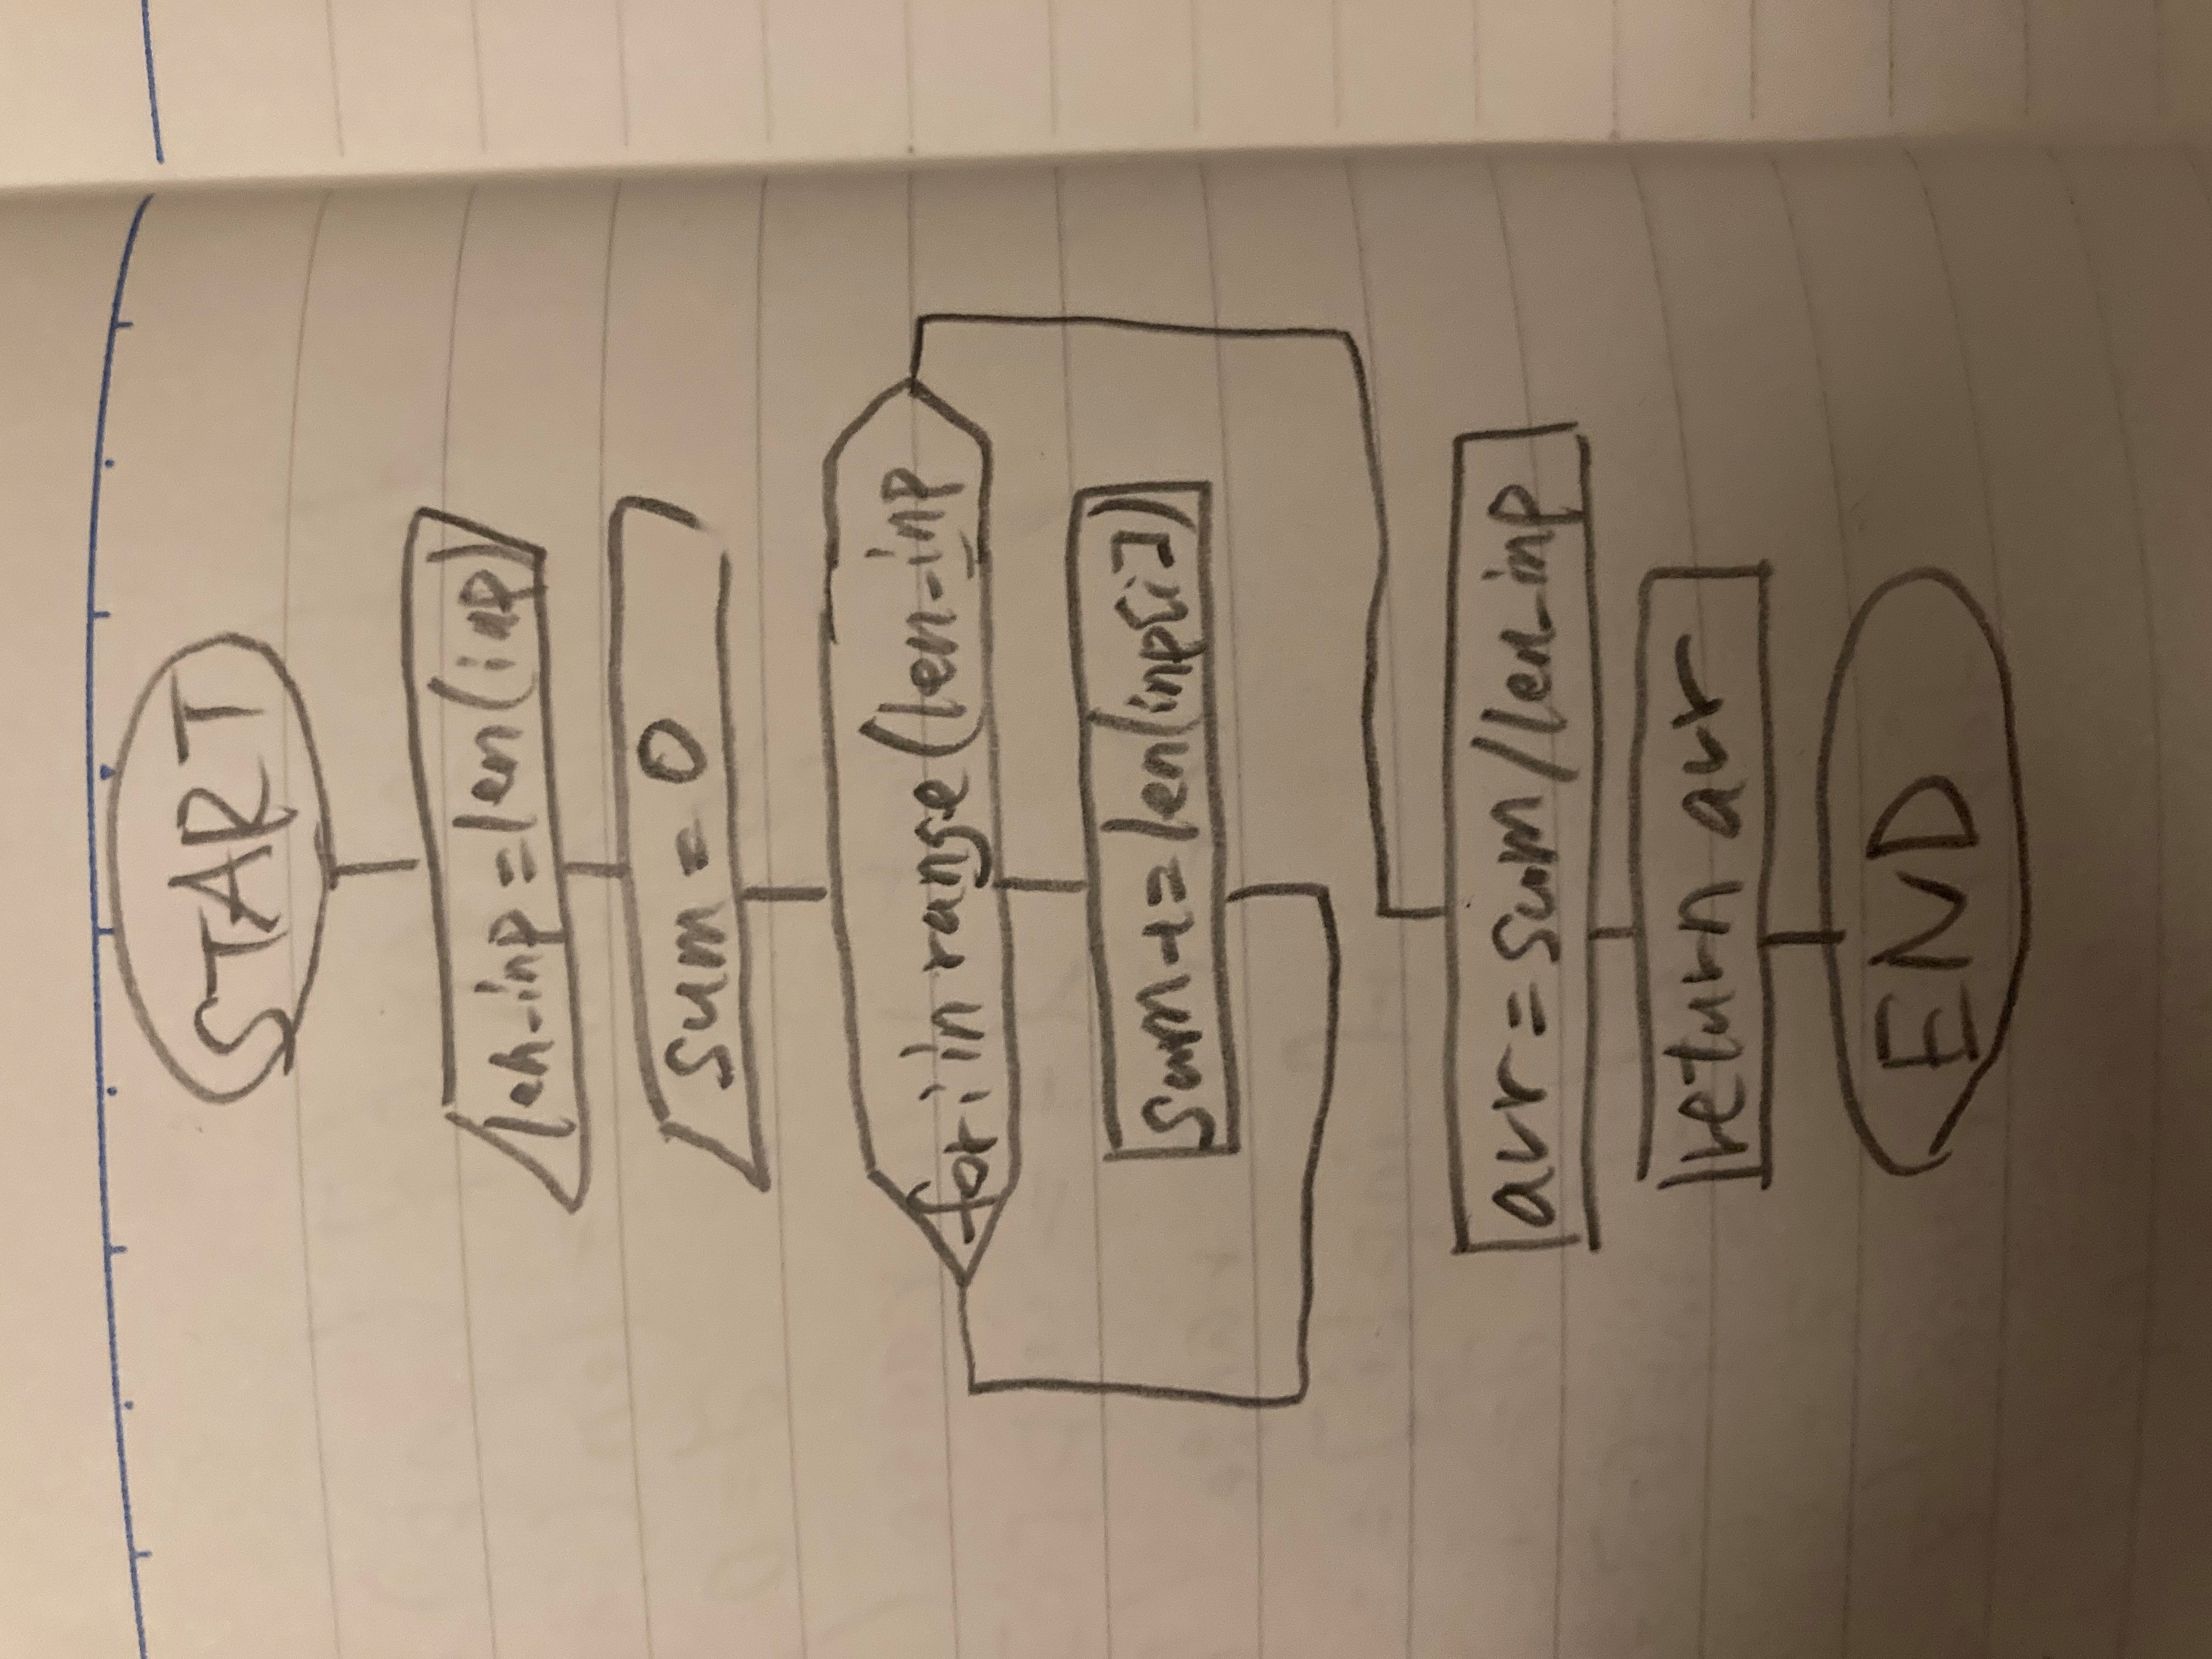 START
len_inp = len(inp)
sum = 0
for i in range(len_inp
sum += len(inp[i])
avr = sum/len_inp
return avr
END